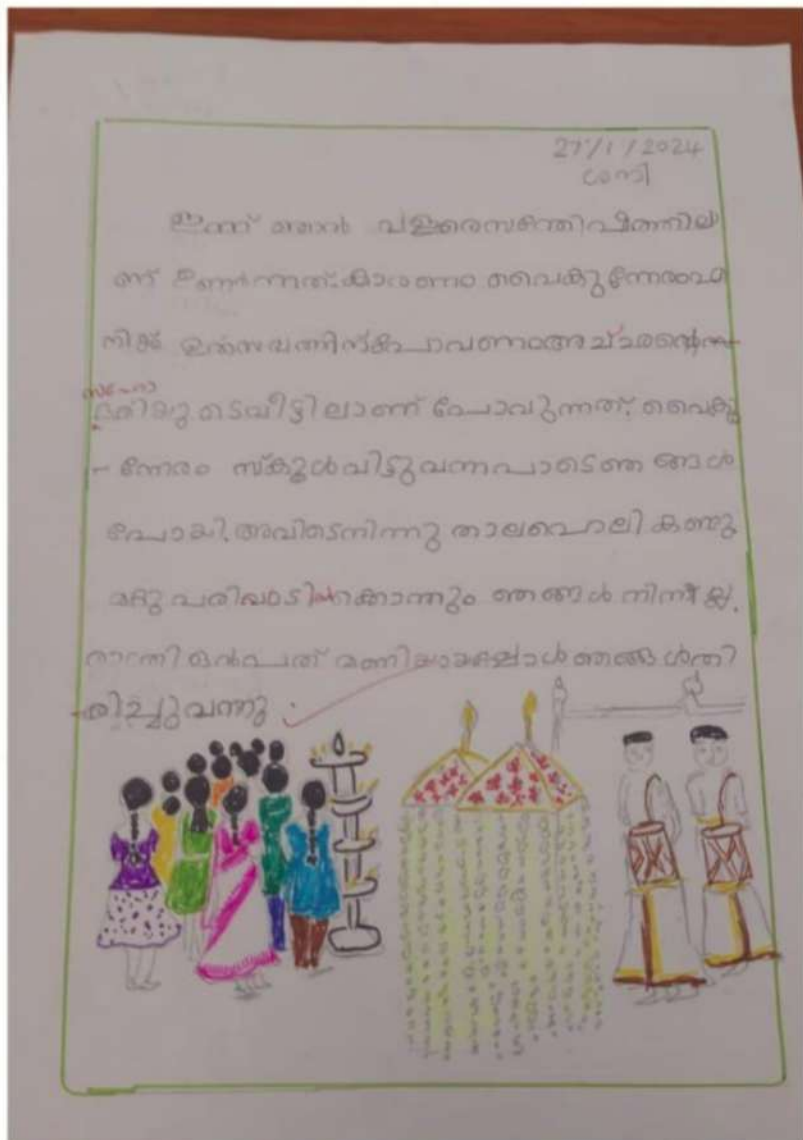 27/1/2024
ശനി
ഇന്ന് ഞാൻ വളരെസന്തോഷത്തില
ണ് ഉണർന്നത്.കാരണം വൈകുന്നേരംഎ
നിക്ക് ഉൽസവത്തിന്പോവണംഅച്ഛൻ്റെ
സഹോ
ദരിയുടെവീട്ടിലാണ് പോവുന്നത്. വൈകു
- ന്നേരം സ്കൂൾവിട്ടുവന്നപാടെഞങ്ങൾ
പോയി.അവിടെനിന്നു താലപൊലി കണ്ടു
മറ്റു പരിപാടിക്കൊന്നും ഞങ്ങൾ നിന്നില്ല.
രാത്രി ഒൻപത് മണിയായപ്പോൾ ഞങ്ങൾതി
രിച്ചുവന്നു.